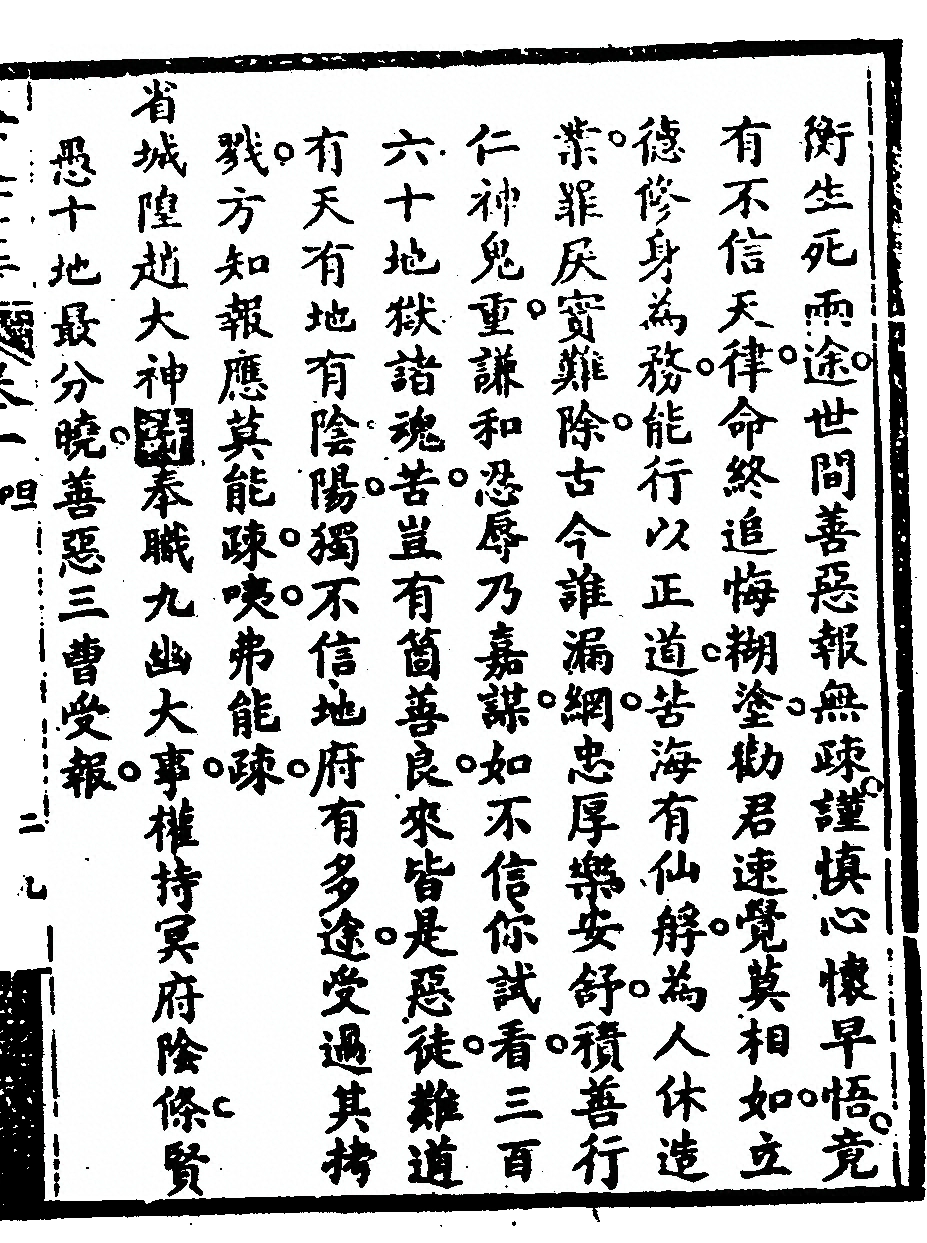 衡生死兩途世間善惡報無疎謹慎心懷早悟竟
有不信天律命終追悔糊塗勸君速覺莫相如立
德修身為務能行以正道苦海有仙艀為人休造
業罪戾實難除古今誰漏網忠厚樂安舒積善行
仁神鬼重謙和忍辱乃嘉謀如不信你試看三百
六十地獄諸魂苦豈有箇善良來皆是惡徒難道
有天有地有陰陽獨不信地府有多途受過其拷
戮方知報應莫能疎咦弗能疎
省城隍趙大神奉職九幽大事權持冥府陰條賢
愚十地最分曉善惡三曹受報
卷一
二九